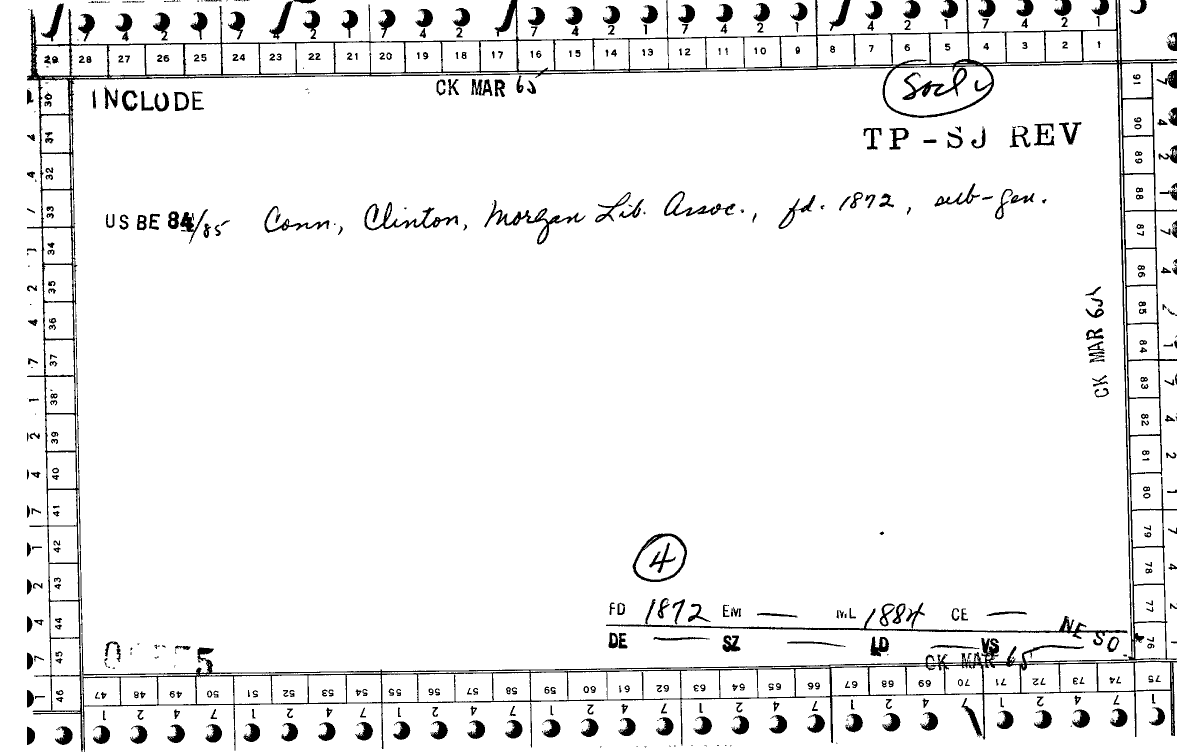 29 28 27 26 25 24 23 22 21 20 19 18 17 16 15 14 13 12 11 10 9 8 7 6 5 4 3 2 1
INCLUDE
CK MAR 65
TP-SJ REV
US BE 84/85 Conn., Clinton, Morgan Lib. Assoc., fd. 1872, sub-gen.
CK MAR 65
4
FD 1872 EM — ML 1884 CE —
DE — SZ — LD — VS — NE SO
CK MAR 65
30 31 32 33 34 35 36 37 38 39 40 41 42 43 44 45 46
91 90 89 88 87 86 85 84 83 82 81 80 79 78 77 76
47 48 49 50 51 52 53 54 55 56 57 58 59 60 61 62 63 64 65 66 67 68 69 70 71 72 73 74 75